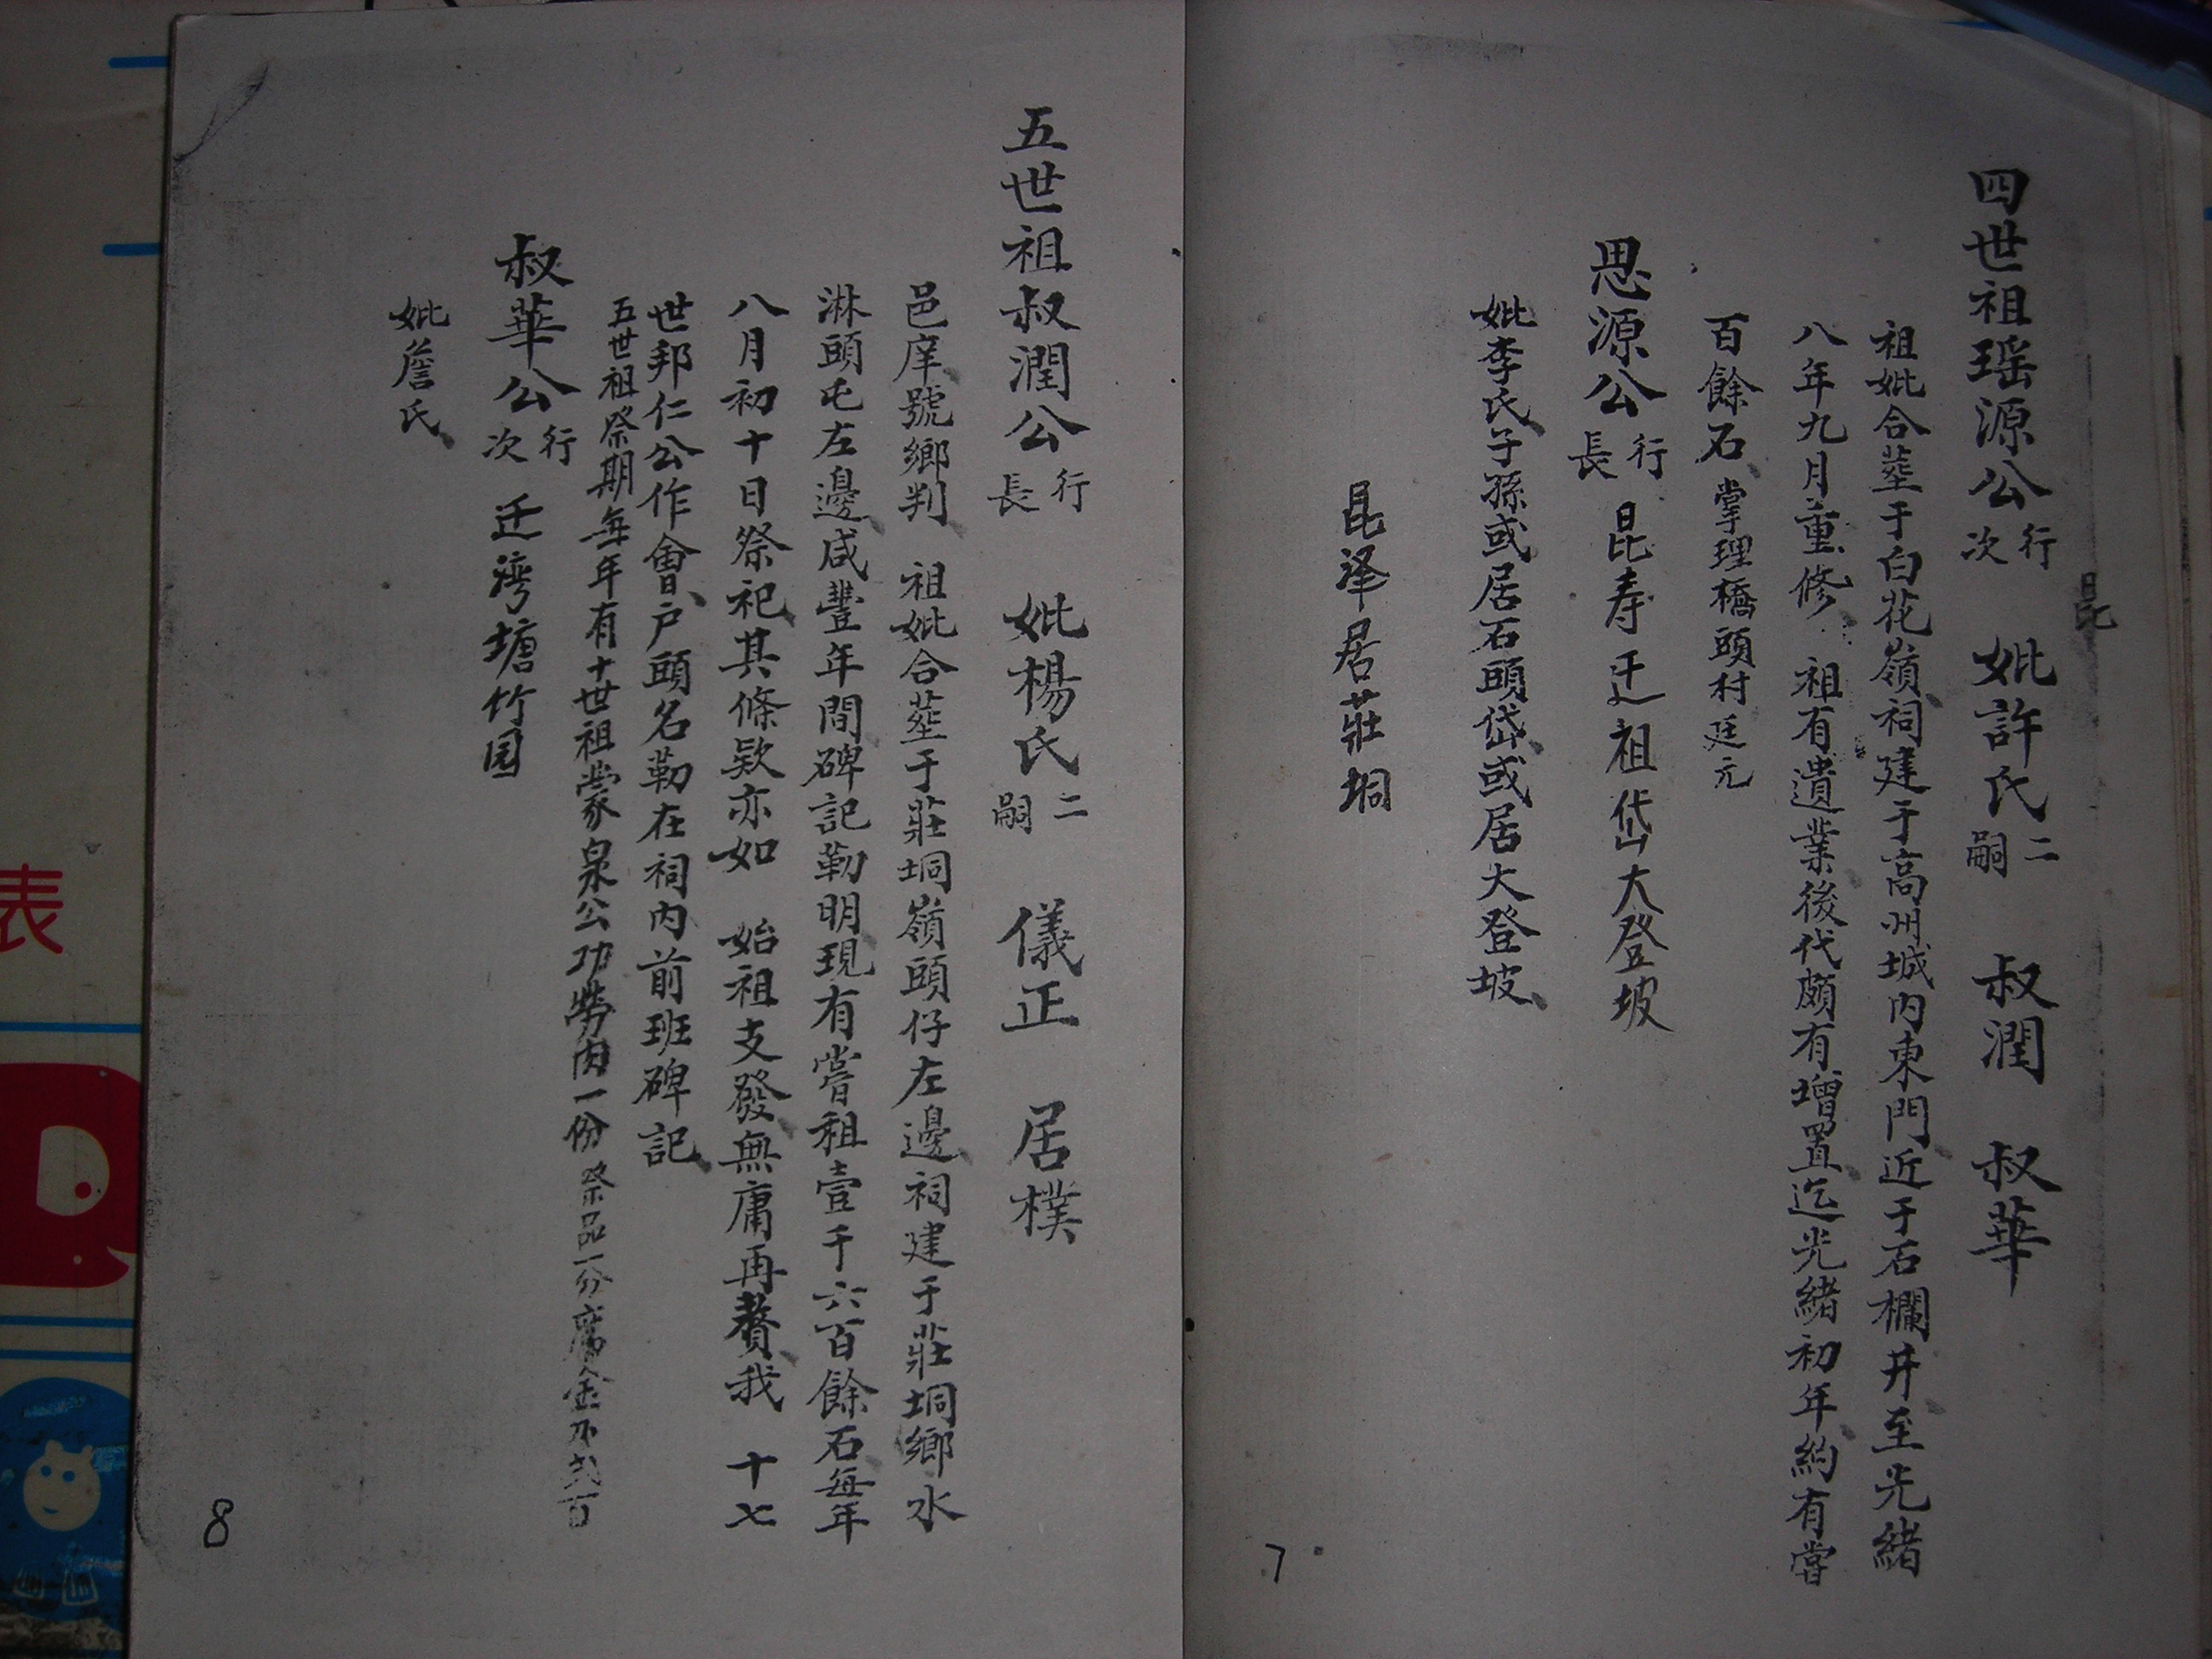 昆
四世祖瑶源公 行次 妣許氏 二嗣 叔潤 叔華
祖妣合塟于白花嶺祠建于高州城内東門近于石欄井至光緒
八年九月重修 祖有遺業後代頗有增置迄光緒初年約有嘗
百餘石 掌理橋頭村廷元
思源公 行長 昆寿迁祖岱大登坡
妣李氏子孫或居石頭岱或居大登坡
昆泽居莊垌
7
五世祖叔潤公 行長 妣楊氏 二嗣 儀正 居樸
邑庠號鄉判 祖妣合塟于莊垌嶺頭仔左邊祠建于莊垌鄉水
淋頭屯左邊咸豐年間碑記勒明現有嘗租壹千六百餘石每年
八月初十日祭祀其條欵亦如 始祖支發無庸再贅我 十七
世邦仁公作會户頭名勒在祠内前班碑記
五世祖祭期每年有十世祖蒙泉公功勞肉一份祭品一分席金不弍百
叔華公 行次 迁湾塘竹园
妣詹氏
8
表